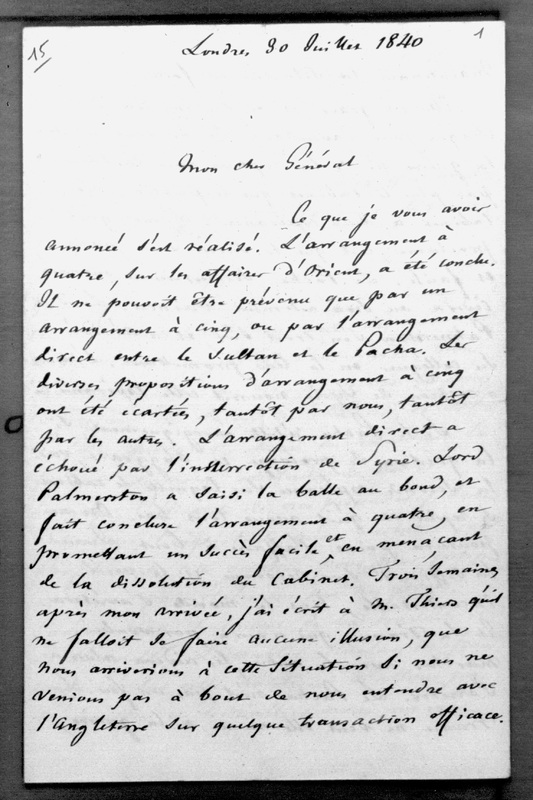 15
1
Londres 30 Juillet 1840
Mon cher Général
Ce que je vous avois
annoncé s'est réalisé. L'arrangement à
quatre, sur les affaires d'Orient, a été conclu.
Il ne pouvoit être prévenu que par un
arrangement à cinq, ou par l'arrangement
direct entre le Sultan et le Pacha. Les
diverses propositions d'arrangement à cinq
ont été écartées, tantôt par nous, tantôt
par les autres. L'arrangement direct a
échoué par l'insurrection de Syrie. Lord
Palmerston a saisi la balle au bond, et
fait conclure l'arrangement à quatre, en
promettant un succès facile et en menaçant
de la dissolution du Cabinet. Trois semaines
après mon arrivée, j'ai écrit à M. Thiers qu'il
ne falloit se faire aucune illusion, que
nous arriverions à cette situation si nous ne
venions pas à bout de nous entendre avec
l'Angleterre sur quelque transaction efficace.